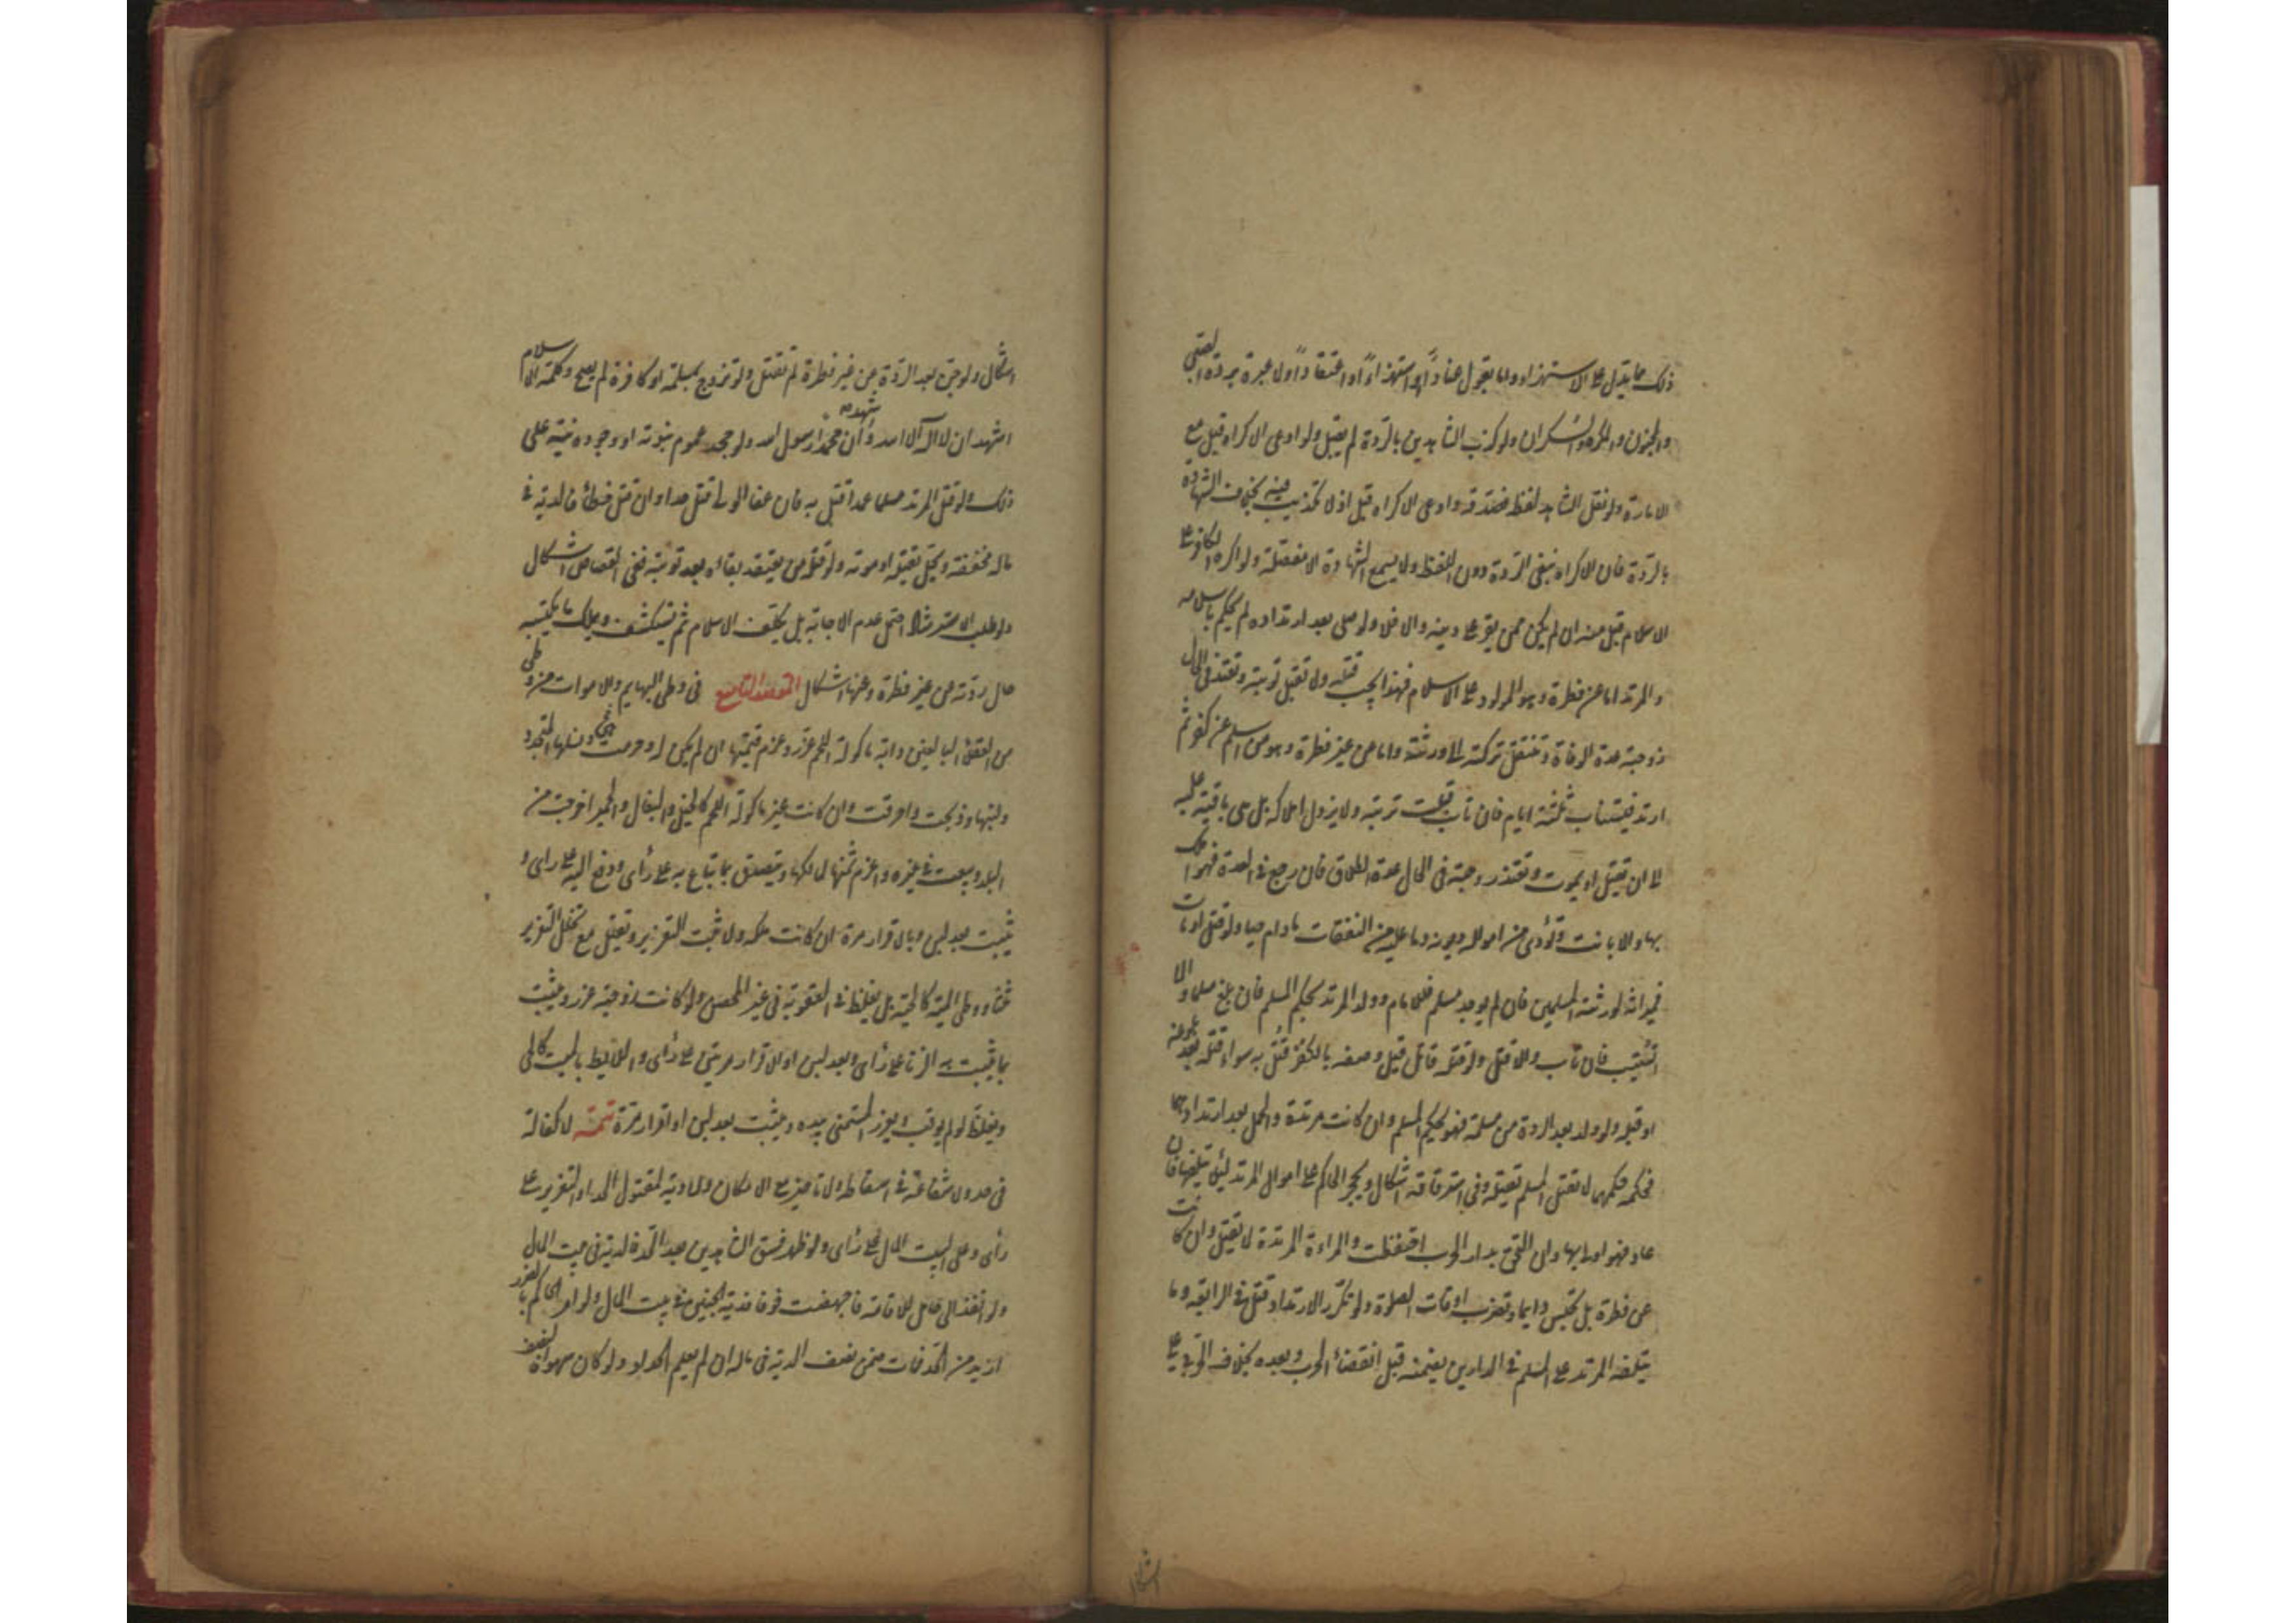 ذلك مما يدل على الاستهزاء واما بقول عنادًا او استهزاءً او اعتقادًا ولا عبرة بردة الصبي
والمجنون والمكره والسكران ولو كذب الشاهدين بالردة لم يقبل ولو ادعى الاكراه قبل مع
الامارة ولو نقل الشاهد لفظه فصدقه وادعى الاكراه قبل اذ لا تكذيب فيه بخلاف الشهادة
بالردة فان الاكراه ينفي الردة دون اللفظ ولا يسمع الشهادة الا مفصلة ولو اكره الكافر على
الاسلام قبل منه ان لم يكن ممن يقر على دينه والا فلا ولو صلى بعد ارتداده لم يحكم باسلامه
والمرتد اما عن فطرة وهو المولود على الاسلام فهذا يجب قتله ولا تقبل توبته وتعتد في الحال
زوجته عدة الوفاة وتنتقل تركته الى ورثته واما عن غير فطرة وهو من اسلم عن كفر ثم
ارتد فيستتاب ثلثة ايام فان تاب قبلت توبته ولا يزول املاكه بل هي باقية عليه
الى ان يقتل او يموت وتعتد زوجته في الحال عدة الطلاق فان رجع في العدة فهو املك
بها والا بانت وتؤدى من امواله ديونه وما عليه من النفقات مادام حيا ولو قتل او مات
فميراثه لورثته المسلمين فان لم يوجد مسلم فللامام وولد المرتد بحكم المسلم فان بلغ مسلما والا
استتيب فان تاب والا قتل ولو قتله قاتل قبل وصفه بالكفر قُتل به سواء قتله بعد بلوغه
او قبله ولو ولد بعد الردة من مسلمة فهو بحكم المسلم وان كانت مرتدة والحمل بعد ارتدادهما
فحكمه حكمهما لا يقتل المسلم بقتله وفي استرقاقه اشكال ويحجر الحاكم على اموال المرتد لئلا يتلفها فان
عاد فهو اولى بها وان التحق بدار الحرب احتفظت والمراءة المرتدة لا تقتل وان كانت
عن فطرة بل تحبس دايما وتضرب اوقات الصلوة ولو تكرر الارتداد قتل في الرابعة وما
يتلفه المرتد على المسلم في الدارين يضمنه قبل انقضاء الحرب وبعده بخلاف الحربي على
اشكال
اشكال ولو جن بعد الردة عن غير فطرة لم يقتل ولو تزوج بمسلمة او كافرة لم يصح وكلمة الاسلام
اشهد ان لا اله الا الله واشهد ان محمدًا رسول الله ولو جحد عموم نبوته او وجوده نبه على
ذلك ولو قتل المرتد مسلما عمدا قتل به فان عفا الولي قتل حدا وان قتل خطأ فالدية في
ماله مخففة وتحل بقتله او موته ولو قتله من يعتقد بقاءه بعد توبته ففي القصاص اشكال
ولو طلب الاسترشاد احتمل عدم الاجابة بل يكلف الاسلام ثم يستكشف ويملك ما يكتسبه
حال ردته عن غير فطرة وعنها اشكال المقصد التاسع في وطي البهايم والاموات من وطى
من العقلاء البالغين دابة ماكولة اللحم عزر وغرم قيمتها ان لم يكن له وحرمت هي ونسلها المتجدد
ولبنها وذبحت واحرقت وان كانت غير ماكولة اللحم كالخيل والبغال والحمير اخرجت من
البلد وبيعت في غيره واغرم ثمنها لمالكها ويتصدق بما تباع به على رأى ودفع اليه على راى و
يثبت بعدلين وبالاقرار مرة ان كانت ملكه والا ثبت التعزير ويقتل مع تخلل التعزير
ثلثا ووطى الميتة كالحية بل يغلظ في العقوبة في غير المحصن ولو كانت زوجته عزر ويثبت
بما يثبت به الزنا على رأى وبعدلين او الاقرار مرتين على رأى واللايط بالميت كالحي
ويغلظ لو لم يوقب ويعزر المستمني بيده ويثبت بعدلين او اقرار مرة تتمة لا كفالة
في حد ولا شفاعة في اسقاطه ولا تاخير مع الامكان ولا دية لمقتول الحد او التعزير على
رأى وعلى بيت المال على رأى ولو ظهر فسق الشاهدين بعد الحد فالدية في بيت المال
ولو انفذ الى حامل للاقامة فاجهضت خوفا فدية الجنين في بيت المال ولو امر الحاكم بالضرب
ازيد من الحد فمات ضمن نصف الدية في ماله ان لم يعلم الحداد ولو كان سهوا فالنصف